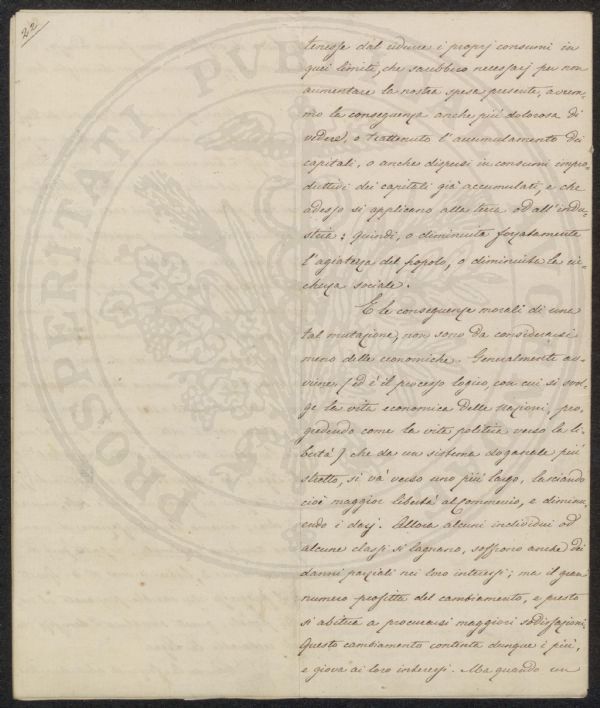 22
tenesse dal ridurre i proprj consumi in
quei limiti, che sarebbero necessarj per non
aumentare la nostra spesa presente, avrem-
mo la conseguenza anche più dolorosa di
vedere, o trattenuto l'accumulamento dei
capitali, o anche dispersi in consumi impro-
duttivi dei capitali già accumulati, e che
adesso si applicano alla terra od all'indu-
stria: quindi, o diminuita forzatamente
l'agiatezza del popolo, o diminuita la ric-
chezza sociale.
E le conseguenze morali di una
tal mutazione, non sono da considerarsi
meno delle economiche. Generalmente av-
viene (ed è il processo logico, con cui si svol-
ge la vita economica delle nazioni, pro-
gredendo come la vita politica verso la li-
bertà) che da un sistema doganale più
stretto, si và verso uno più largo, lasciando
cioè maggior libertà al commercio, e diminu-
endo i dazj. Allora alcuni individui od
alcune classi si lagnano, soffrono anche dei
danni parziali nei loro interessi; ma il gran
numero profitta del cambiamento, e presto
si abitua a procurarsi maggiori sodisfazioni.
Questo cambiamento contenta dunque i più,
e giova ai loro interessi. Ma quando un
PROSPERITATI PUBLICAE